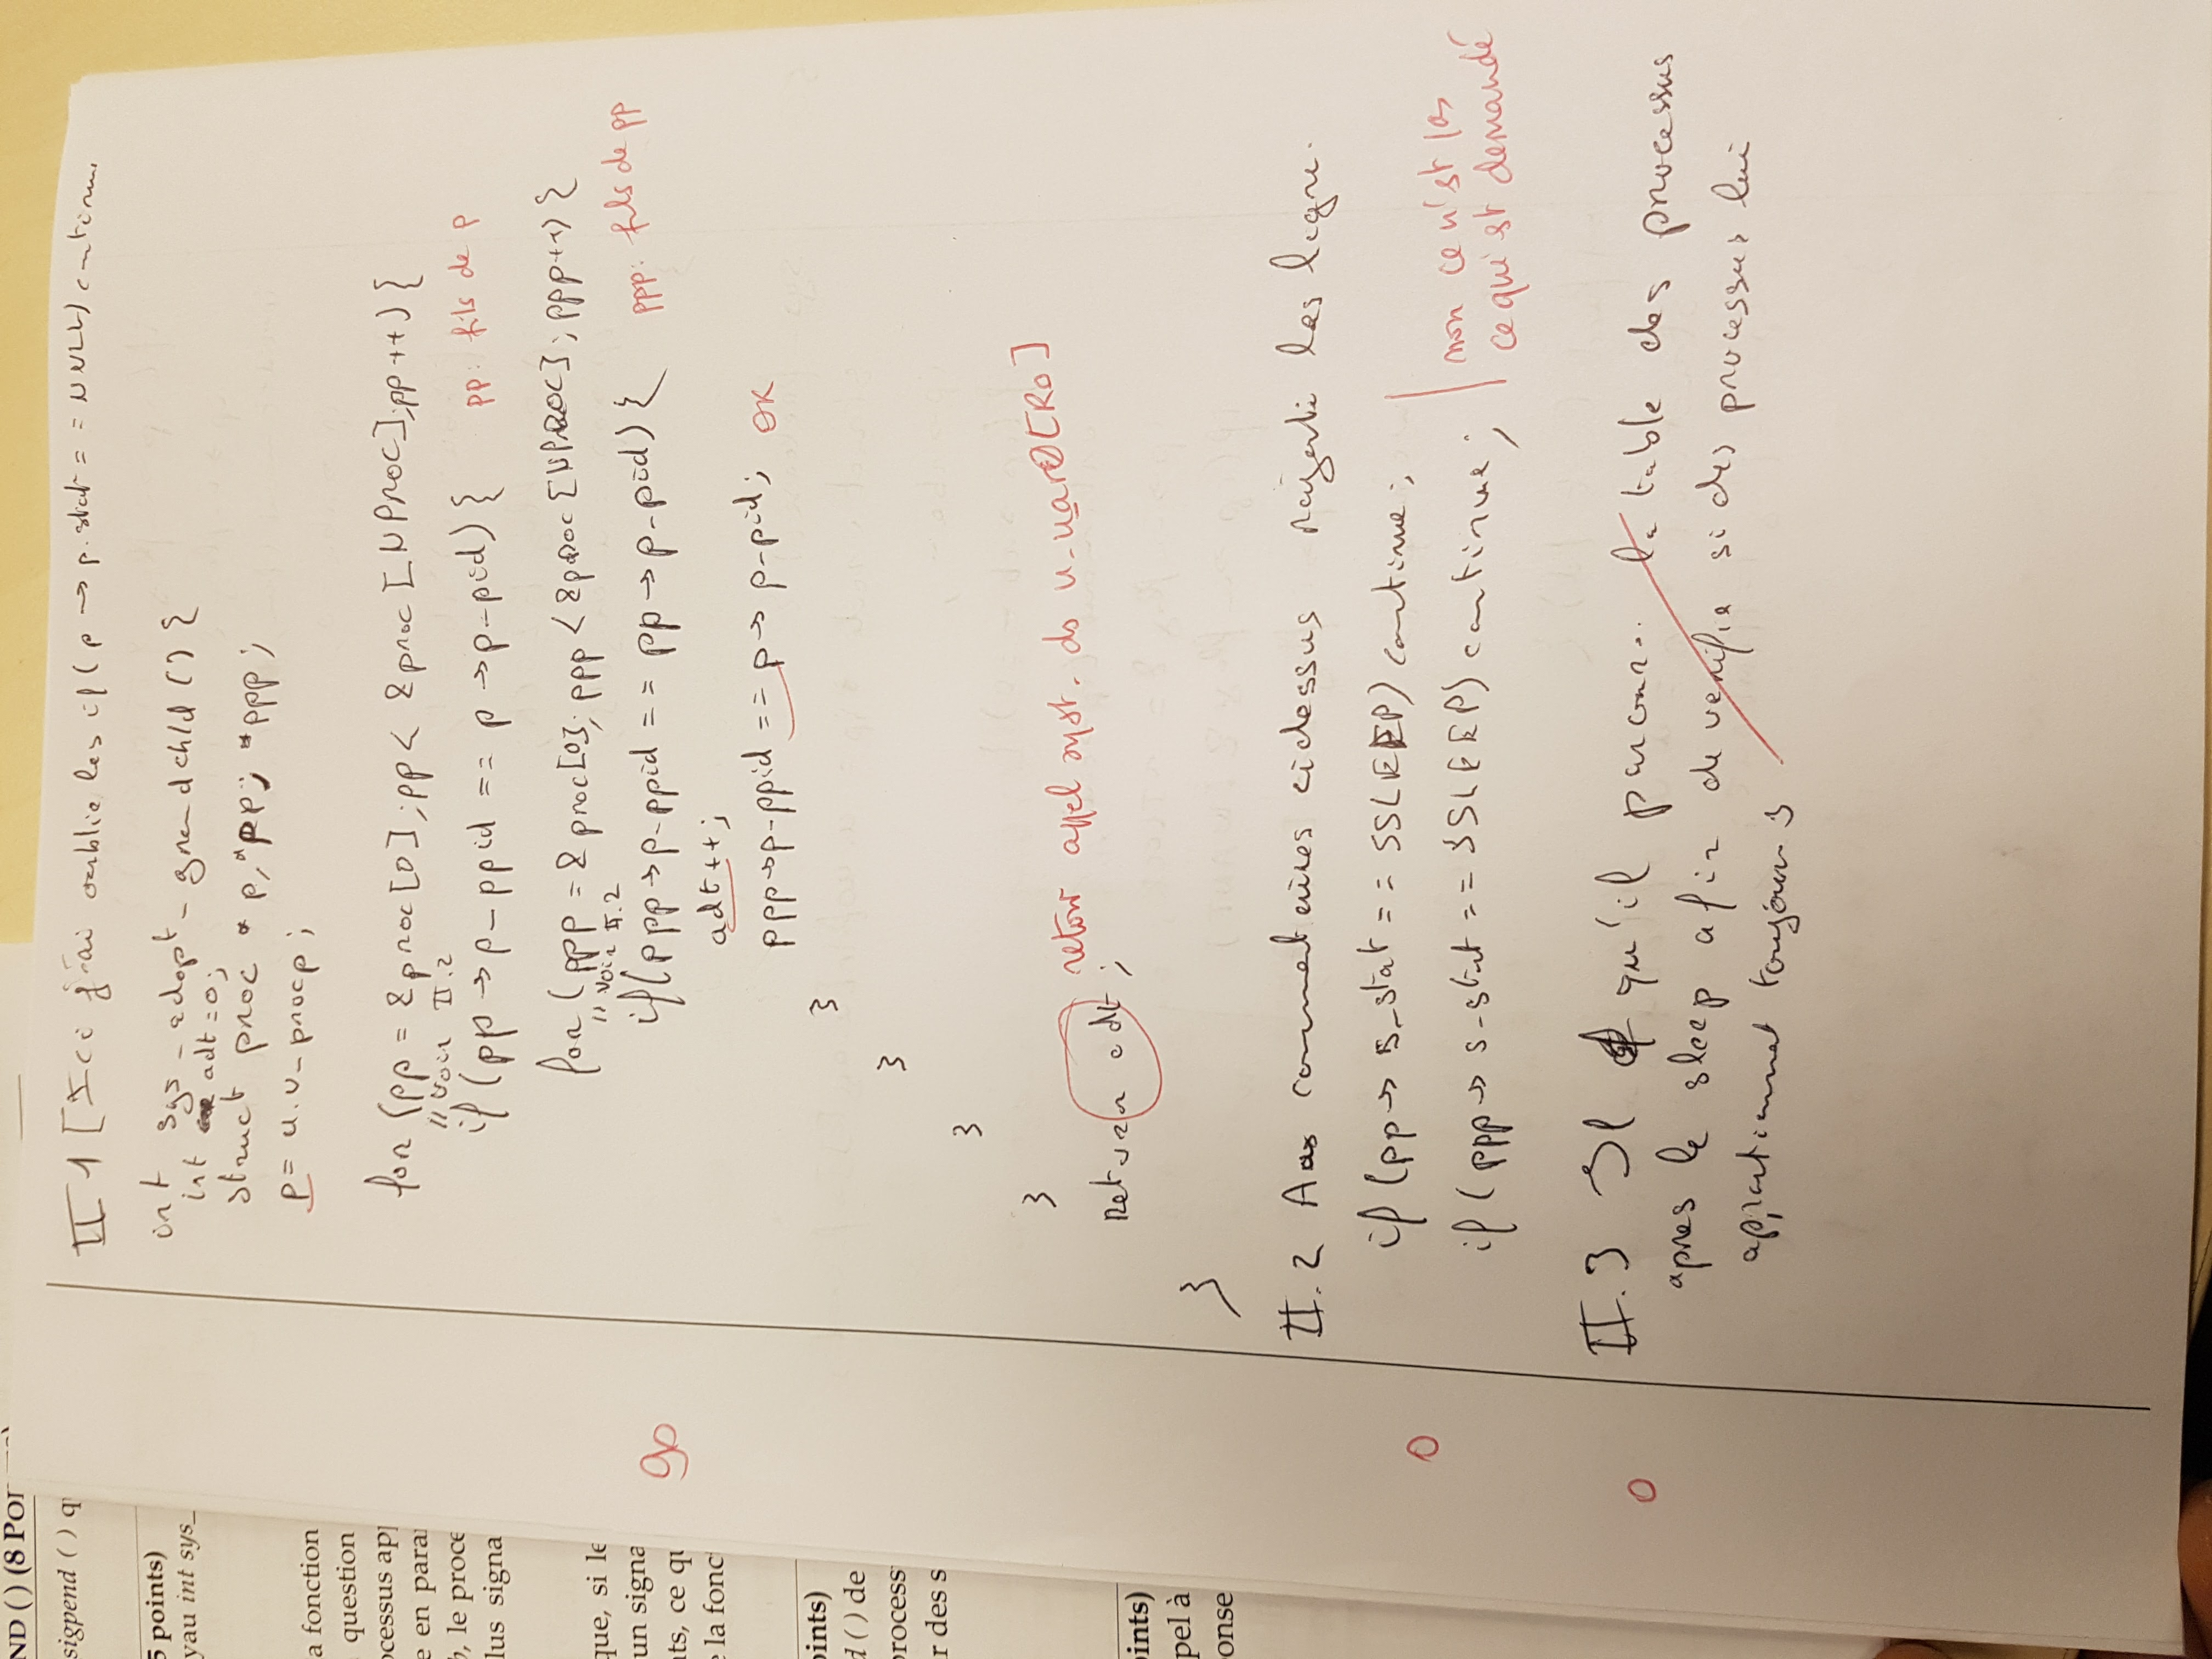 ND ( ) (8 Po
sigpend ( ) q
5 points)
yau int sys_
a fonction
question
ocessus app
e en para
, le proce
lus signa
que, si le
un signa
ts, ce qu
e la fonc
oints)
d ( ) de
process
r des s
oints)
pel à
onse
II 1 [Ici j'ai oublie les if (p -> p.stat == NULL) continue
int sys_adopt_grandchld () {
int adt = 0;
struct proc * p, *pp; *ppp;
p = u.u_procp;
for (pp = &proc[0]; pp < &proc[NPROC]; pp++) {
// voir II.2
if (pp -> p_ppid == p -> p_pid) { pp: fils de p
for (ppp = &proc[0]; ppp < &proc[NPROC]; ppp++) {
// voir II.2
90
if (ppp -> p_ppid == pp -> p_pid) { ppp: fils de pp
adt++;
ppp -> p_ppid == p -> p_pid; OK
}
}
}
}
retour appel syst. ds u.uar0[R0]
return adt;
}
II.2 Aux commentaires cidessus rajouté les ligne.
if (pp -> s_stat == SSLEEP) continue;
0
if (ppp -> s_stat == SSLEEP) continue;
non ce n'est pas
ce qui est demandé
II.3 Il qu'il parcour.. la table des processus
0
apres le sleep afin de verifie si des processus lui
appartiennet toujours